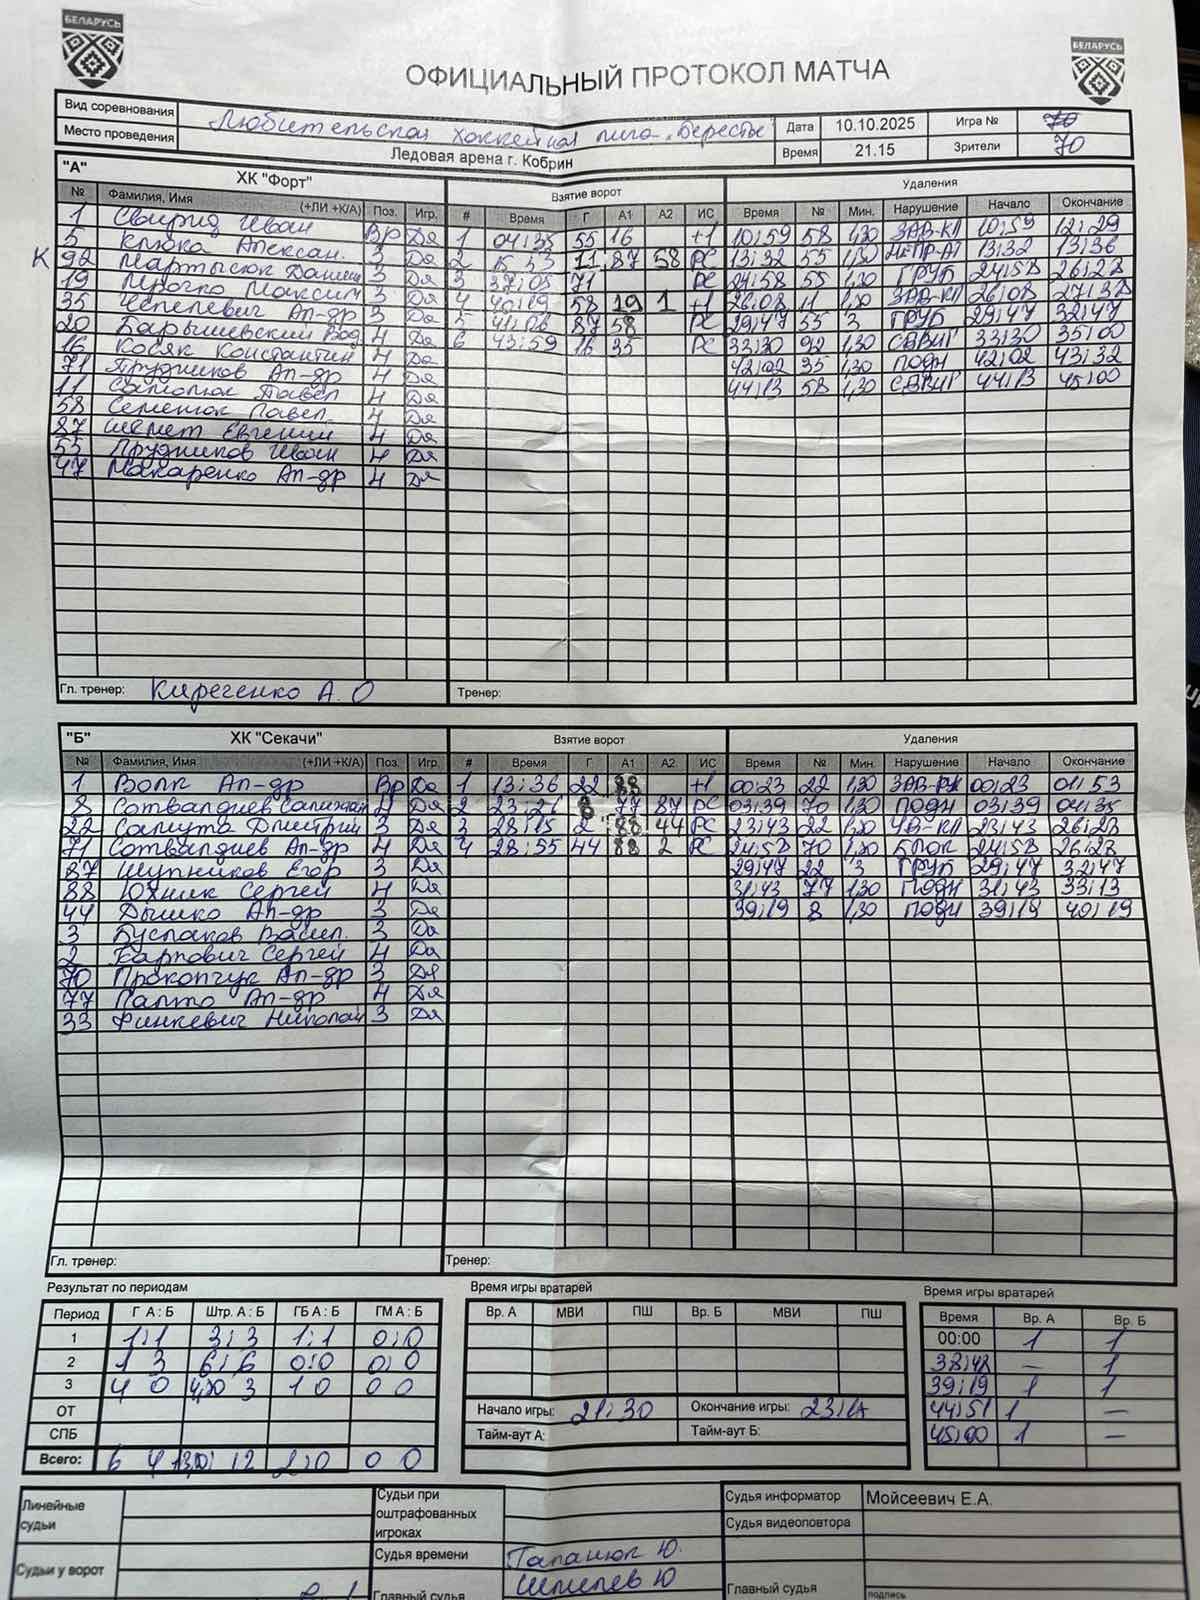 БЕЛАРУСЬ
БЕЛАРУСЬ
ОФИЦИАЛЬНЫЙ ПРОТОКОЛ МАТЧА
Вид соревнования Любительская хоккейная лига "Бересты" Дата 10.10.2025 Игра № 70
Место проведения Ледовая арена г. Кобрин Время 21.15 Зрители 70
"А" ХК "Форт" Взятие ворот Удаления
№ Фамилия, Имя (+ЛИ +К/А) Поз. Игр. # Время Г А1 А2 ИС Время № Мин. Нарушение Начало Окончание
1 Свирид Иван Вр Да 1 04:35 55 16 +1 10:59 58 1,30 ЗАВ-КЛ 10:59 12:29
5 Клюка Алексан. З Да 2 11 87 58 РС 13:32 55 1,30 13:32 13:36
К 92 Мартысюк Даниил З Да 3 37:05 71 РС 24:58 55 1,30 ГРУБ 24:58 26:28
19 Максим З Да 4 40:19 58 19 1 +1 26:08 11 1,30 ЗАВ-КЛ 26:08 27:38
35 Чепелевич Ал-др З Да 5 41:06 87 58 РС 29:47 55 3 ГРУБ 29:47 32:47
20 Барышевский Вад Н Да 6 43:59 16 35 РС 33:30 92 1,30 33:30 35:00
16 Косяк Константин Н Да 42:02 35 1,30 ПОДН 42:02 43:32
71 Прудников Ал-др Н Да 44:13 58 1,30 44:13 45:00
11 Павел Н Да
58 Семенюк Павел Н Да
87 Шемет Евгений Н Да
55 Прудников Иван Н Да
47 Макаренко Ал-др Н Да
Гл. тренер: Киреченко А. О Тренер:
"Б" ХК "Секачи" Взятие ворот Удаления
№ Фамилия, Имя (+ЛИ +К/А) Поз. Игр. # Время Г А1 А2 ИС Время № Мин. Нарушение Начало Окончание
1 Волк Ал-др Вр Да 1 13:36 22 88 +1 00:23 22 1,30 00:23 01:53
8 Сотвалдиев Н Да 2 23:26 8 77 87 РС 03:39 70 1,30 ПОДН 03:39 04:35
22 Салиута Дмитрий З Да 3 28:15 2 88 44 РС 23:43 22 1,30 23:43 26:23
71 Сотвалдиев Ал-др Н Да 4 28:55 44 88 2 РС 24:58 70 1,30 БЛОК 24:58 26:28
87 Шупников Егор З Да 29:47 22 3 ГРУБ 29:47 32:47
88 Юхник Сергей Н Да 31:43 77 1,30 ПОДН 31:43 33:13
44 Дышко Ал-др З Да 39:19 8 1,30 ПОДН 39:19 40:19
3 Буслаков Васил. З Да
2 Карпович Сергей Н Да
70 Прокопчук Ал-др З Да
77 Ал-др Н Да
33 Финкевич Николай З Да
Гл. тренер: Тренер:
Результат по периодам Время игры вратарей Время игры вратарей
Период Г А : Б Штр. А : Б ГБ А : Б ГМ А : Б Вр. А МВИ ПШ Вр. Б МВИ ПШ Время Вр. А Вр. Б
1 1:1 3:3 1:1 0:0 00:00 1 1
2 1 3 6:6 0:0 0:0 38:48 – 1
3 4 0 4,30 3 1 0 0 0 39:19 1 1
ОТ Начало игры: 21:30 Окончание игры: 44:51 1 –
СПБ Тайм-аут А: Тайм-аут Б: 45:00 1 –
Всего: 6 4 12 2:0 0 0
Линейные судьи Судьи при оштрафованных игроках Судья информатор Мойсеевич Е.А.
Судья видеоповтора
Судьи у ворот Судья времени Ю.
Главный судья Шпилев Ю Главный судья
подпись